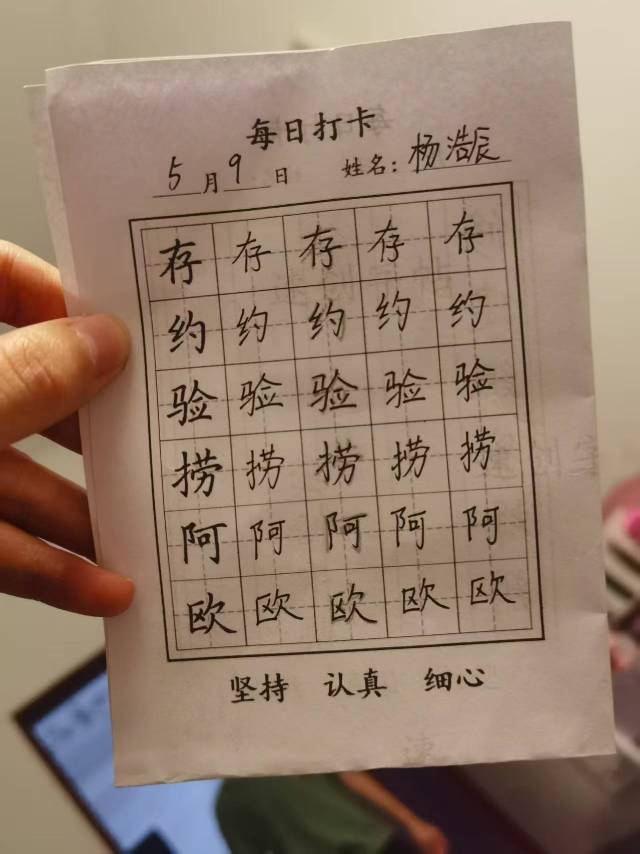 每日打卡
5月9日 姓名：杨浩辰
存存存存存
约约约约约
验验验验验
捞捞捞捞捞
阿阿阿阿阿
欧欧欧欧欧
坚持 认真 细心